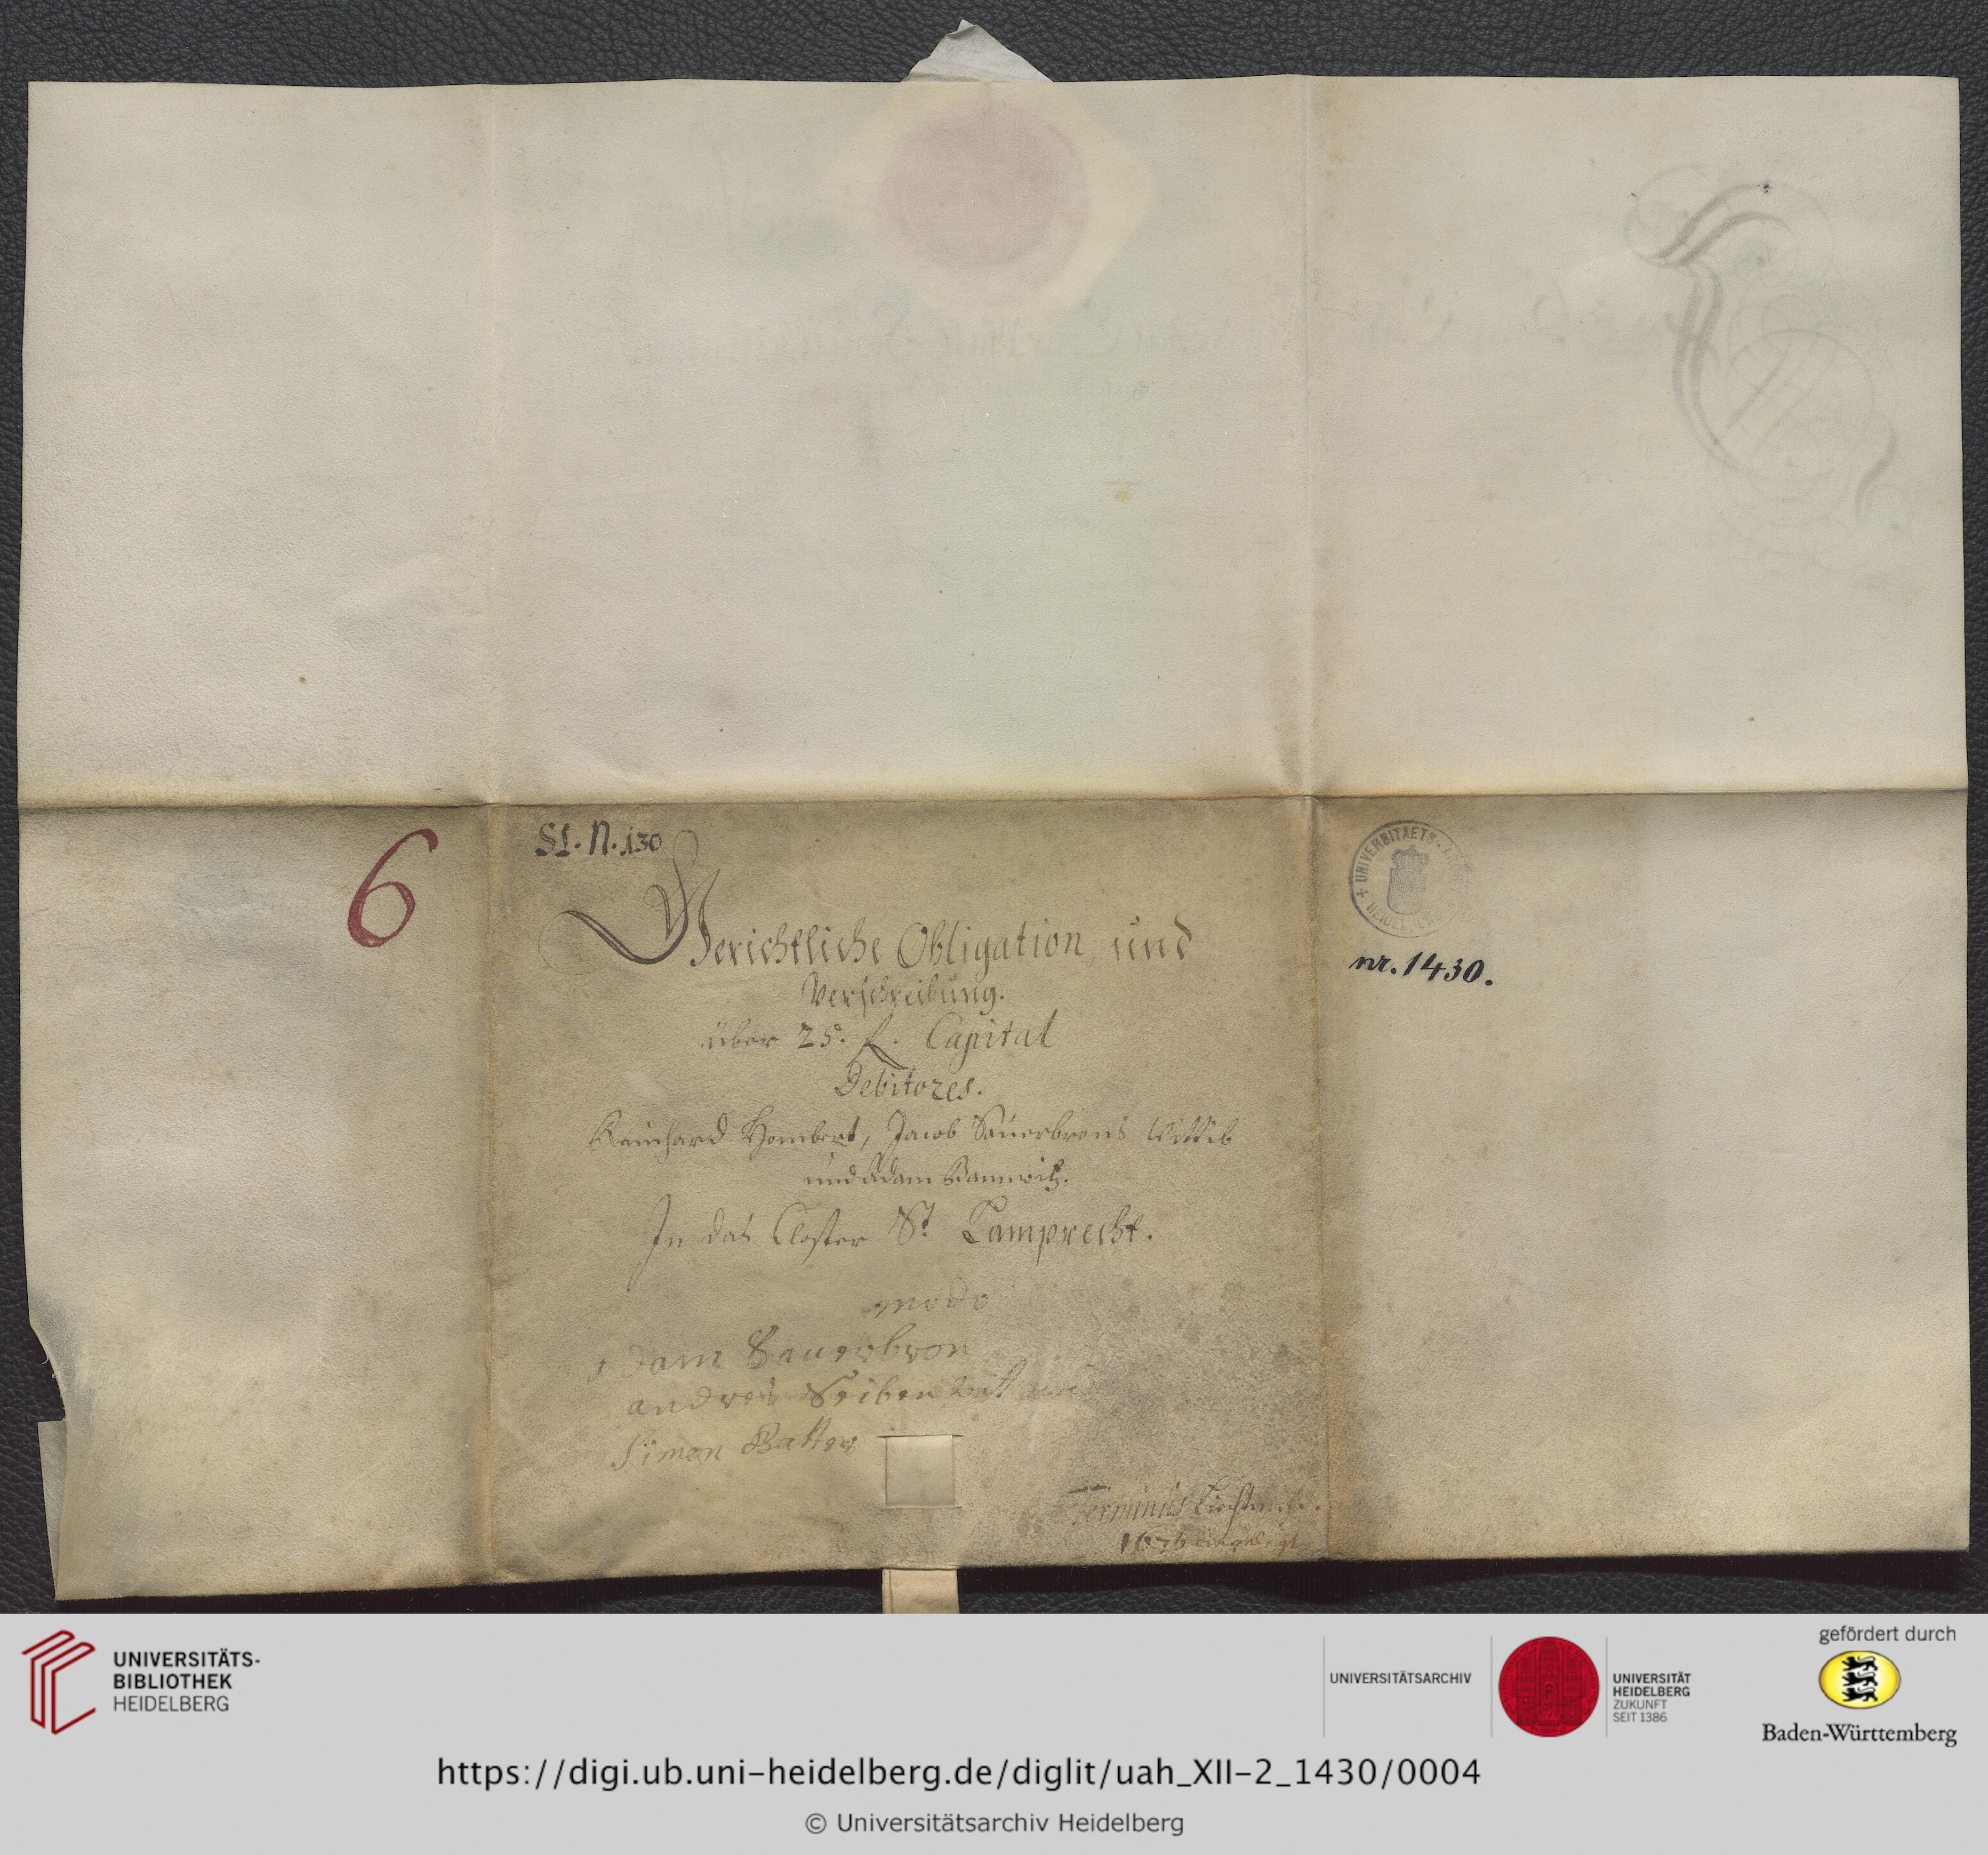 6
St. N. 130
Gerichtliche Obligation und
Verschreibung.
über 25. f. Capital
Debitores.
Reinhard Hombert, Jacob Sauerbrons Wittib
und Adam
In das Closter St Lamprecht.
modo
Adam Sauerbron
andres
Simon Batter
Terminus
1676
UNIVERSITAETS-
HEIDELBERG
nr. 1430.
UNIVERSITÄTS-
BIBLIOTHEK
HEIDELBERG
UNIVERSITÄTSARCHIV
UNIVERSITÄT
HEIDELBERG
ZUKUNFT
SEIT 1386
gefördert durch
Baden-Württemberg
https://digi.ub.uni-heidelberg.de/diglit/uah_XII-2_1430/0004
© Universitätsarchiv Heidelberg